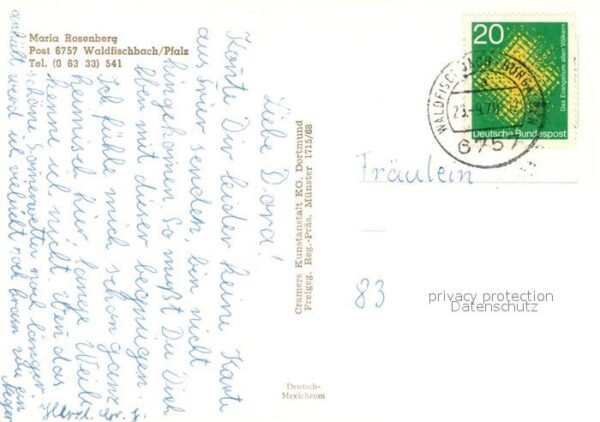 Maria Rosenberg
Post 6757 Waldfischbach/Pfalz
Tel. (0 63 33) 541
Liebe Dora!
Konnte Dir leider keine Karte
aus Trier senden, bin nicht
hingekommen. So mußt Du Dich
eben mit dieser begnügen.
Ich fühle mich schon ganz
heimisch hier, lange Weile
kenne ich nicht. Wenn das
schöne Sommerwetter noch länger
anhält werd ich vielleicht noch braun wie ein
Neger
Herzl. Gr.
Cramers Kunstanstalt KG. Dortmund
Freigeg. Reg.-Präs. Münster 1715/68
Deutsch-
Mexichrom
20
Das Evangelium allen Völkern
Deutsche Bundespost
6757
Fräulein
83
privacy protection
Datenschutz